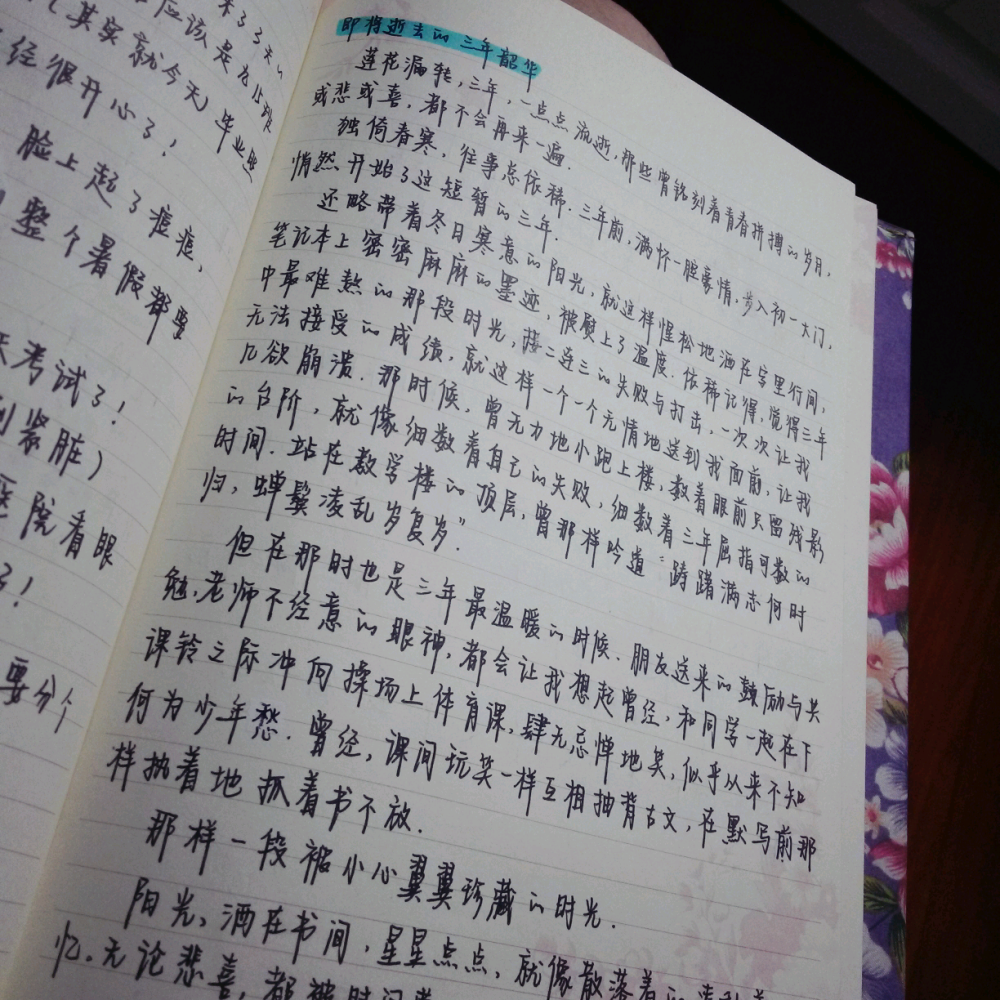 来了3天的
应该是在15班
(其实就今天)毕业照
经很开心了!
脸上起了痘痘,
整个暑假都要
天考试了!
到紧脏)
医院看眼
了!
要分个
即将逝去的三年韶华
莲花漏转,三年,一点点流逝,那些曾铭刻着青春拼搏的岁月,
或悲或喜,都不会再来一遍.
独倚春寒,往事总依稀.三年前,满怀一腔豪情,步入初一大门,
悄然开始了这短暂的三年.
还略带着冬日寒意的阳光,就这样惺松地洒在字里行间,
笔记本上密密麻麻的墨迹,被熨上了温度.依稀记得,觉得三年
中最难熬的那段时光,接二连三的失败与打击,一次次让我
无法接受的成绩,就这样一个一个无情地送到我面前,让我
几欲崩溃.那时候,曾无力地小跑上楼,数着眼前只留残影
的台阶,就像细数着自己的失败,细数着三年屈指可数的
时间.站在教学楼的顶层,曾那样吟道“踌躇满志何时
归,蝉鬓凌乱岁复岁”.
但在那时也是三年最温暖的时候.朋友送来的鼓励与共
勉,老师不经意的眼神,都会让我想起曾经,和同学一起在下
课铃之际冲向操场上体育课,肆无忌惮地笑,似乎以来不知
何为少年愁.曾经,课间玩笑一样互相抽背古文,在默写前那
样执着地抓着书不放.
那样一段被小心翼翼珍藏的时光.
阳光,洒在书间,星星点点,就像散落着的
忆.无论悲喜,都被时间